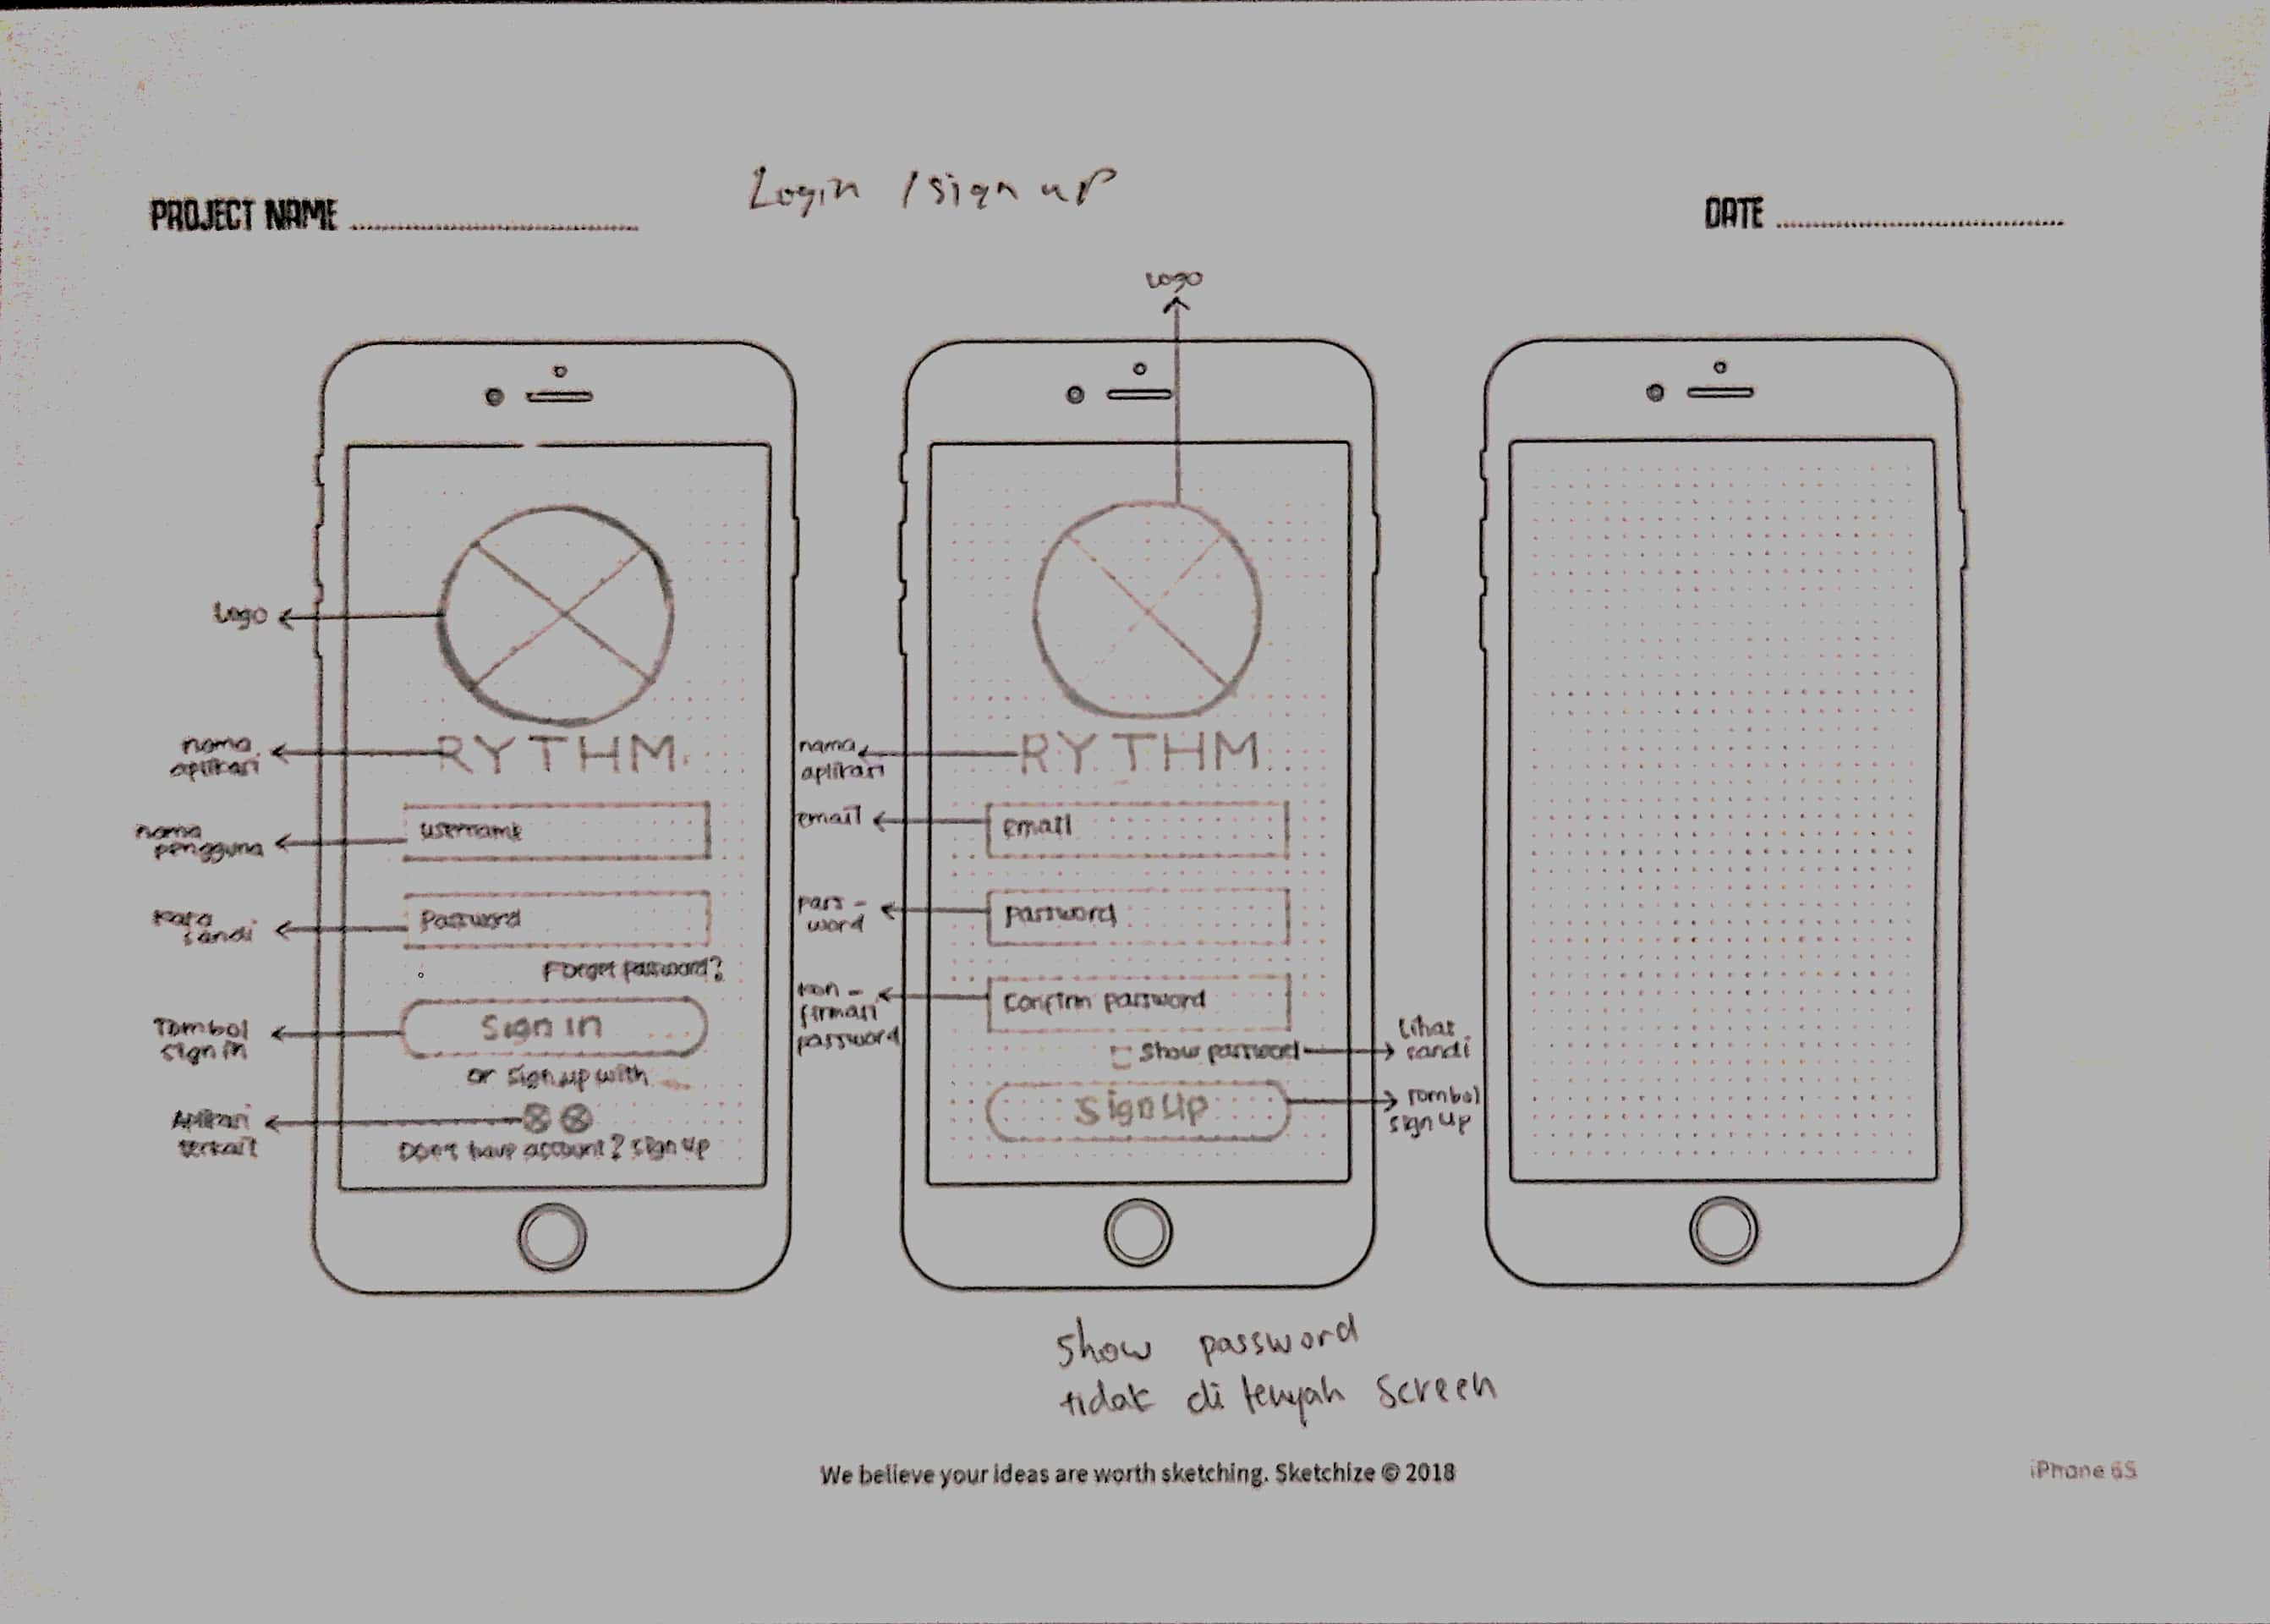 PROJECT NAME
Login / sign up
DATE
Logo
Logo
nama
aplikasi
RYTHM
nama
pengguna
username
kata
sandi
Password
Forget password?
Tombol
sign in
Sign in
or sign up with
Aplikasi
terkait
Don't have account? sign up
nama
aplikasi
RYTHM
email
email
pass-
word
password
kon-
firmasi
password
Confirm password
show password
lihat
sandi
Sign Up
Tombol
sign up
show password
tidak di tengah screen
We believe your ideas are worth sketching. Sketchize © 2018
iPhone 6S